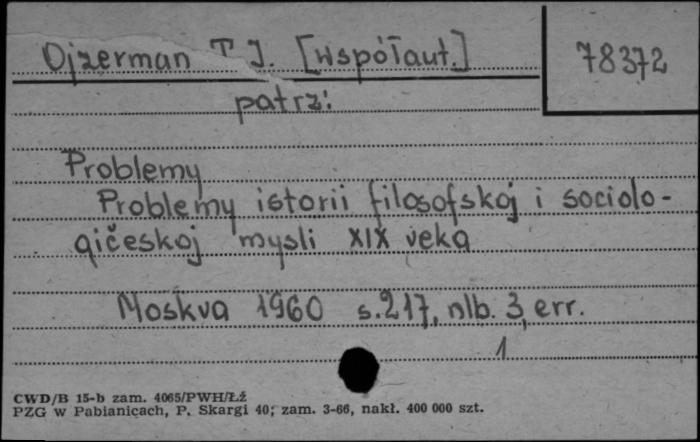 Ojzerman T. J. [współaut.]
78372
patrz:
Problemy
Problemy istorii filosofskoj i sociolo-
gičeskoj mysli XIX veka
Moskva 1960 s. 217, nlb. 3, err.
1
CWD/B 15-b zam. 4065/PWH/Łź
PZG w Pabianicach, P. Skargi 40; zam. 3-66, nakł. 400 000 szt.